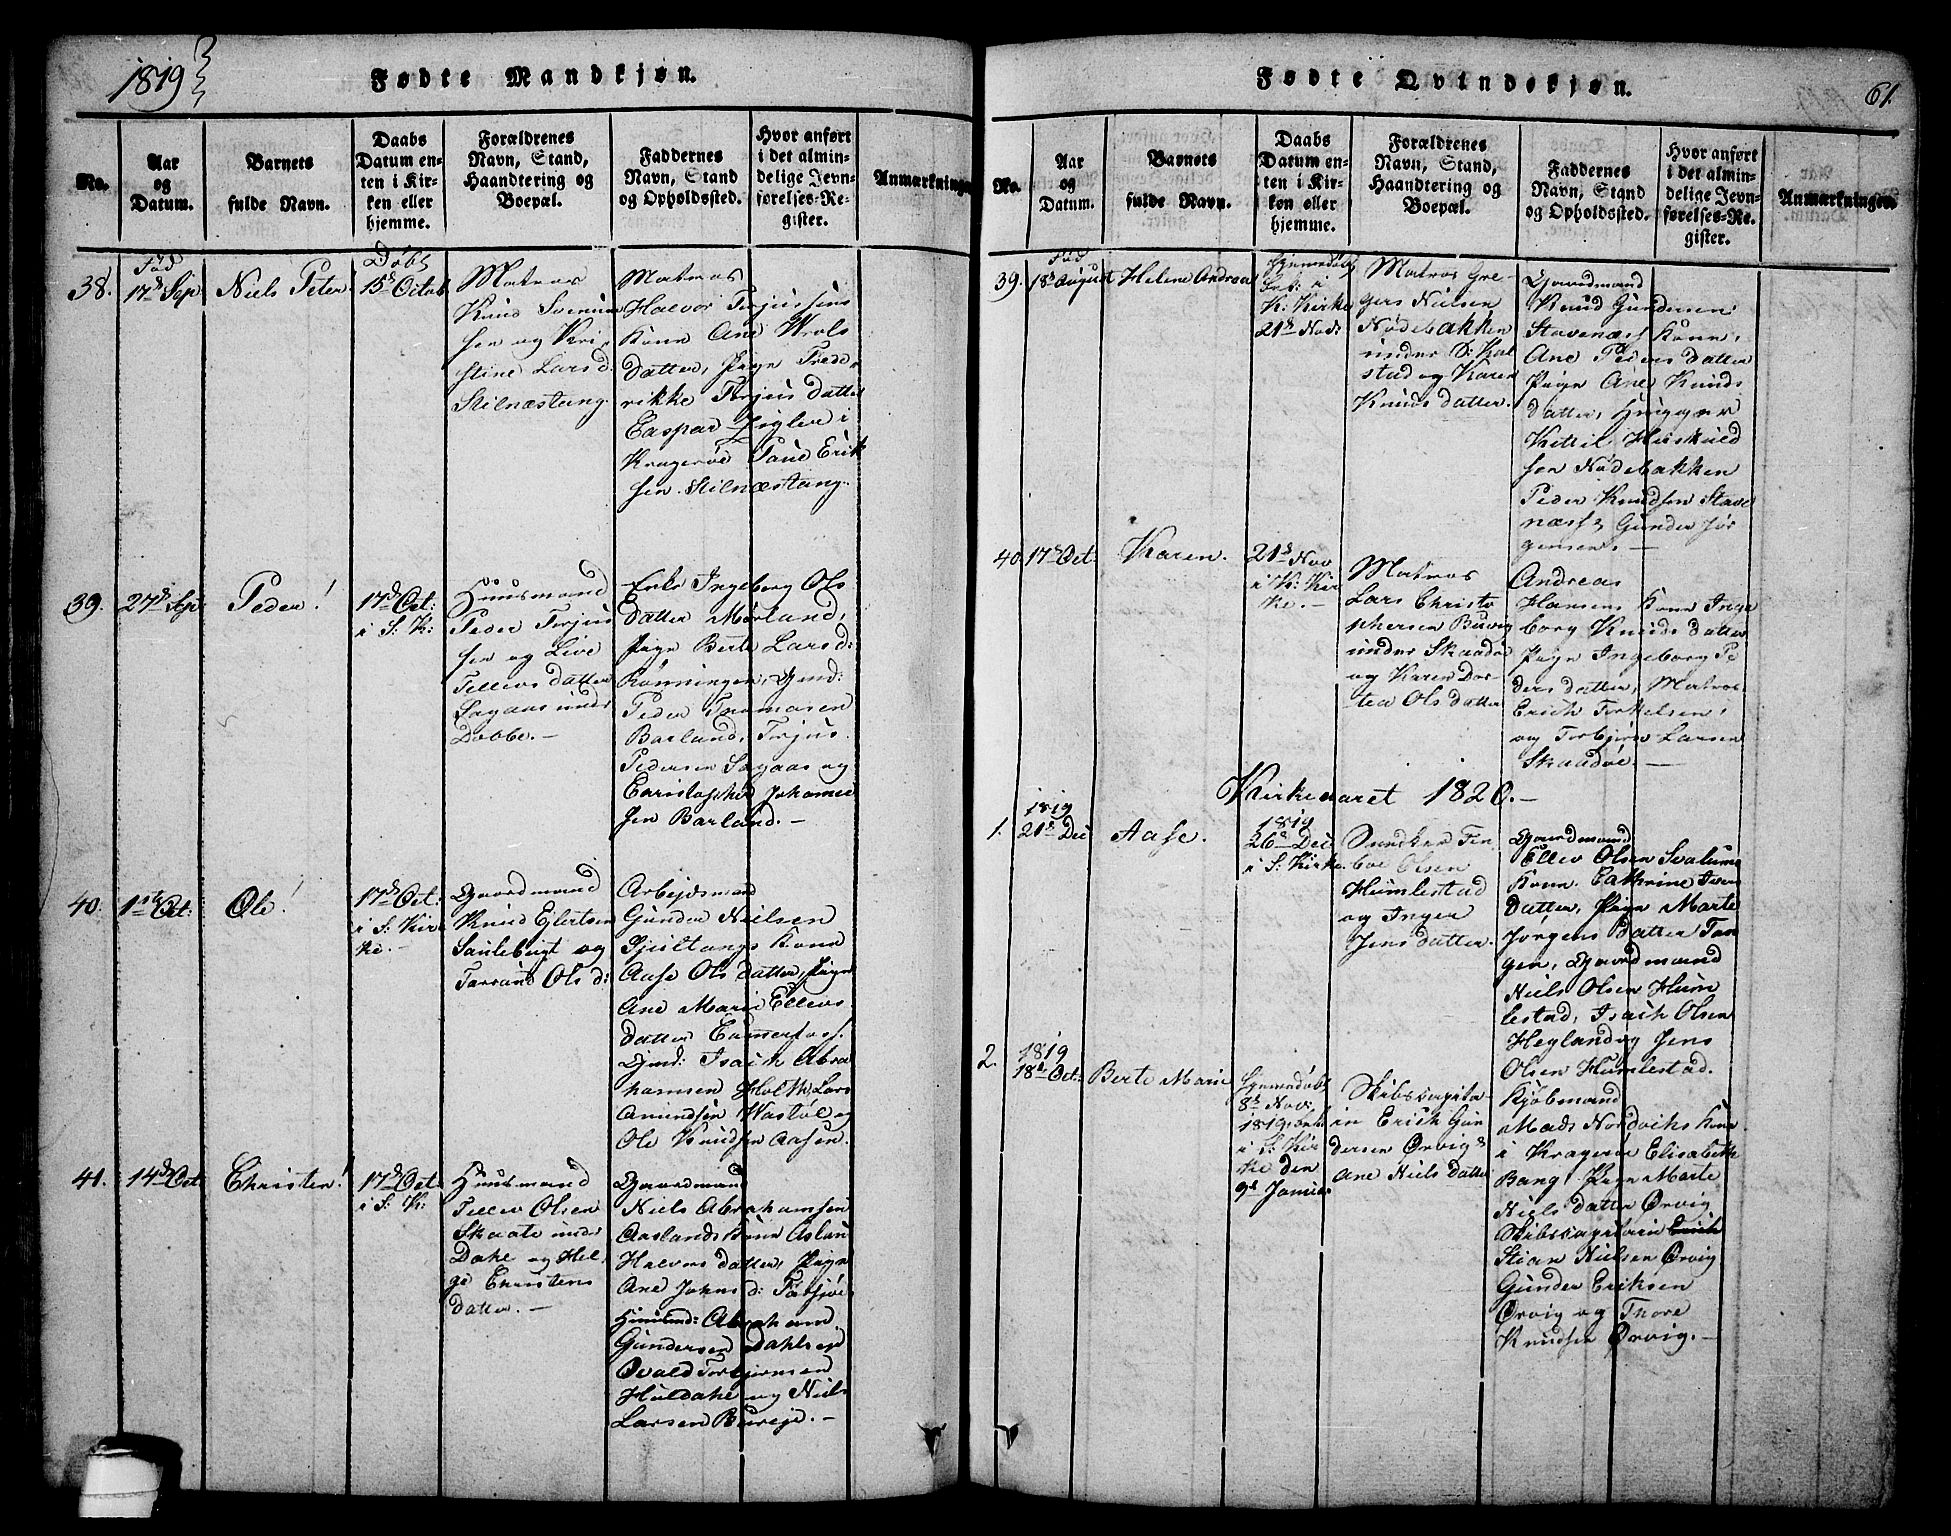 1819
Fødte Mandkjøn.
No.
Aar
og
Datum.
Barnets
fulde Navn.
Daabs
Datum en-
ten i Kir-
ken eller
hjemme.
Forældrenes
Navn, Stand,
Haandtering og
Boepæl.
Faddernes
Navn, Stand
og Opholdssted.
Hvor anført
i det almin-
delige Jevn-
førelses-Re-
gister.
Anmærkninge
38.
Fød
17d Sep
Niels Peter
Døbt
15d Octob
Matros
Knud Svennum
sen og Kri
stine Larsd
Stilnæstang.
Matros
Halvor Terjussens
Kone Ane Wrols
datter, Pign Frede
rikke Terjus datter
Caspar Zigler i
Kragerøe Pane Erik
sen Stilnæstang.
39.
27d Sep
Peder!
17d Oct:
i S: K:
Huusmand
Peder Terjus
sen og Live
Tellevsdatter
Sagaas under
Dobbe.
Enke Ingeborg Ols
datter Mørland,
Pign Berte Larsd:
Rønningen, Gmd:
Peder Thomasen
Barland, Terjus
Pedersen Sagaas og
Christopher Johanne
sen Barland.
40.
1ste Oct:
Ole!
17d Oct:
i S: Kir
ke.
Gaardmand
Knud Eilertsen
Saulebugt og
Tarrand Olsd:
Arbejdsmand
Gunder Nielsen
Gjultangs Kone
Aase Olsdatter, Pign
Ane Marie Ellevs
datter Cammerfoss.
Gmd: Isach Abra
hamsen Holth, Lars
Amundsen Wastøl og
Ole Knudsen Aasen.
41.
14d Oct
Christen!
17d Oct
i S: K:
Huusmand
Tellev Olsen
Skaate under
Dahe og Hel
ge Christens
datter.
Gaardmand
Niels Abrahamsen
Aaslands Kone Aslau
Halvorsdatter, Pign
Ane Johnsd: Fatsjøe
Huusmd: Abraham
Gundersen Dahlseje
Ovald Torbjørnsen
Huldahe og Niels
Larsen Bureje.
Fødte Qvindekjøn.
61.
No.
Aar
og
Datum.
Barnets
fulde Navn.
Daabs
Datum en-
ten i Kir-
ken eller
hjemme.
Forældrenes
Navn, Stand,
Haandtering og
Boepæl.
Faddernes
Navn, Stand
og Opholdssted.
Hvor anført
i det almin-
delige Jevn-
førelses-Re-
gister.
Anmærkninger.
39.
Fød
18d August
Helene Andrea
Hjemmedøbt
bek: i
K: Kirke
21d Nov:
Matros Gre
gers Nielsen
Nødebakken
under S: Kal
stad og Karen
Knudsdatter.
Gaardmand
Knud Gundersen
Stavenæs Kone,
Ane Pedersdatter
Pign Ane Knuds
datter, Huuseyer
Kittil Høiskuld
sen Nødebakken
Peder Knudsen Stave
næss, Gunder Jør
gensen.
40.
17d Oct:
Karen.
21d Nov
i K: Kir
ke.
Matros
Lars Christo
phersen Burvig
under Skaadøe
og Karen Dor
tea Olsdatter
Andreas
Hansens Kone Inge
borg Knudsdatter
Pign Ingeborg Pe
dersdatter, Matros
Erich Terkelsen,
og Torbjørn Larsen
Skaadøe.
Kirkeaaret 1820.
1.
1819
21d Dec
Aase.
1819
26d Dec
i S: Kirke
Snedker Tin
boe Olsen
Humlestad
og Inger
Jensdatter.
Gaardmand
Ellev Olsen Svalums
Kone Cathrine Ivers
datter, Pign Marte
Jørgensdatter Tan
gen, Gaardmand
Niels Olsen Hum
lestad, Isach Olsen
Heglandog Jens
Olsen Humlestad.
2.
1819
18d Oct:
Berte Marie
Hjemmedøbt
8d Nov:
1819, bek
i S: Kir
ke den
9d Januar
Skibscapita
in Erich Gun
dersen Ørvig &
Ane Nielsdatter
Kjøbmand
Mads Nordviks Kone
i Kragerøe Elisabeth
Bang, Pign Marte
Nielsdatter Ørvig
Skibscapitain Erich
Stian Nielsen Ørvig
Gunder Eriksen
Ørvig og Thore
Knudsen Ørvig.